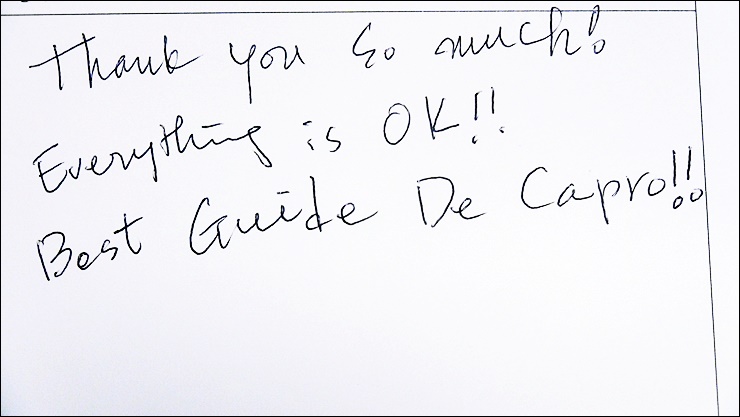 Thank you so much!
Everything is OK!!
Best Guide De Capro!!